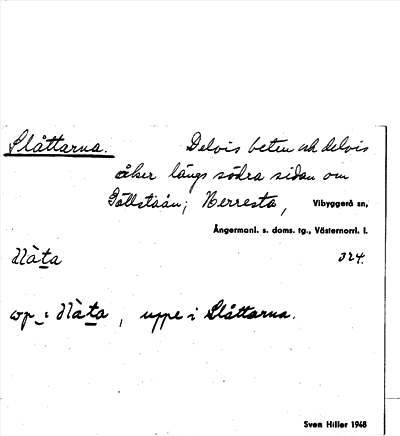 Slåttarna. Delvis beten och delvis
åker längs södra sidan om
Gällstaån; Herresta, Vibyggerå sn,
Ångermanl. s. doms. tg., Västernorrl. l.
324.
uppe i Slåttarna.
Sven Hiller 1948